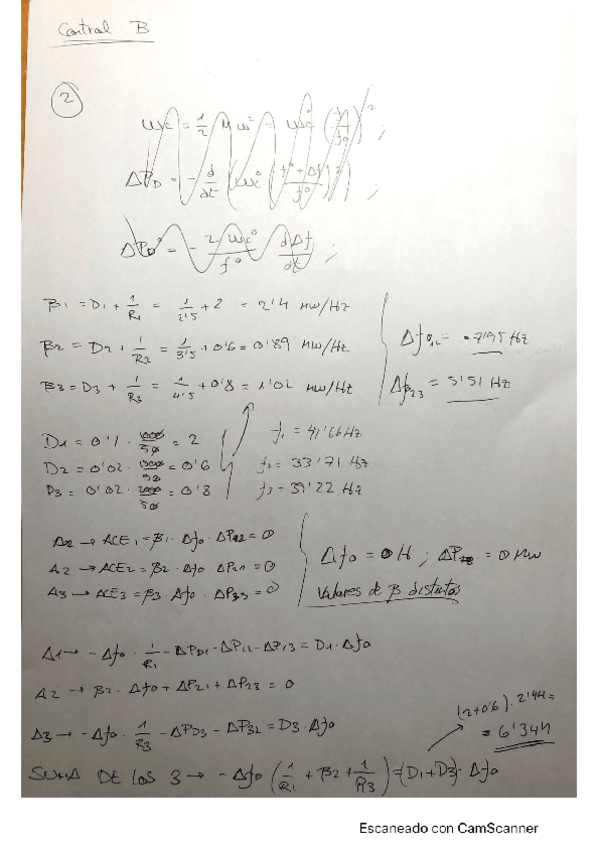 Control B
2
Wc = 1/2 M w² = Wc⁰ (f/f⁰)² ;
ΔPD = - d/dt (Wc⁰ (f⁰ + Δf / f⁰)²) ;
ΔPD = - 2 Wc⁰/f⁰ dΔf/dt ;
β1 = D1 + 1/R1 = 1/2'5 + 2 = 2'4 MW/Hz
β2 = D2 + 1/R2 = 1/3'5 + 0'6 = 0'89 MW/Hz
β3 = D3 + 1/R3 = 1/4'5 + 0'8 = 1'02 MW/Hz
Δf012 = -7'95 Hz
Δf023 = 5'51 Hz
D1 = 0'1 · 1000/50 = 2
D2 = 0'02 · 1500/50 = 0'6
D3 = 0'02 · 2000/50 = 0'8
f1 = 41'66 Hz
f2 = 33'71 Hz
f3 = 39'22 Hz
→ ACE1 = β1 · Δf0 · ΔP12 = 0
A2 → ACE2 = β2 · Δf0 · ΔP21 = 0
A3 → ACE3 = β3 · Δf0 · ΔP33 = 0
Δf0 = 0 H ; = 0 MW
Valores de β distintos
Δ1 → -Δf0 · 1/R1 - ΔPD1 - ΔP12 - ΔP13 = D1 · Δf0
A2 → β2 · Δf0 + ΔP21 + ΔP23 = 0
Δ3 → -Δf0 · 1/R3 - ΔPD3 - ΔP32 = D3 · Δf0
(2+0'6) · 2'44 =
= 6'344
SUMA DE LOS 3 → -Δf0 (1/R1 + β2 + 1/R3) = (D1 + D3) · Δf0
Escaneado con CamScanner